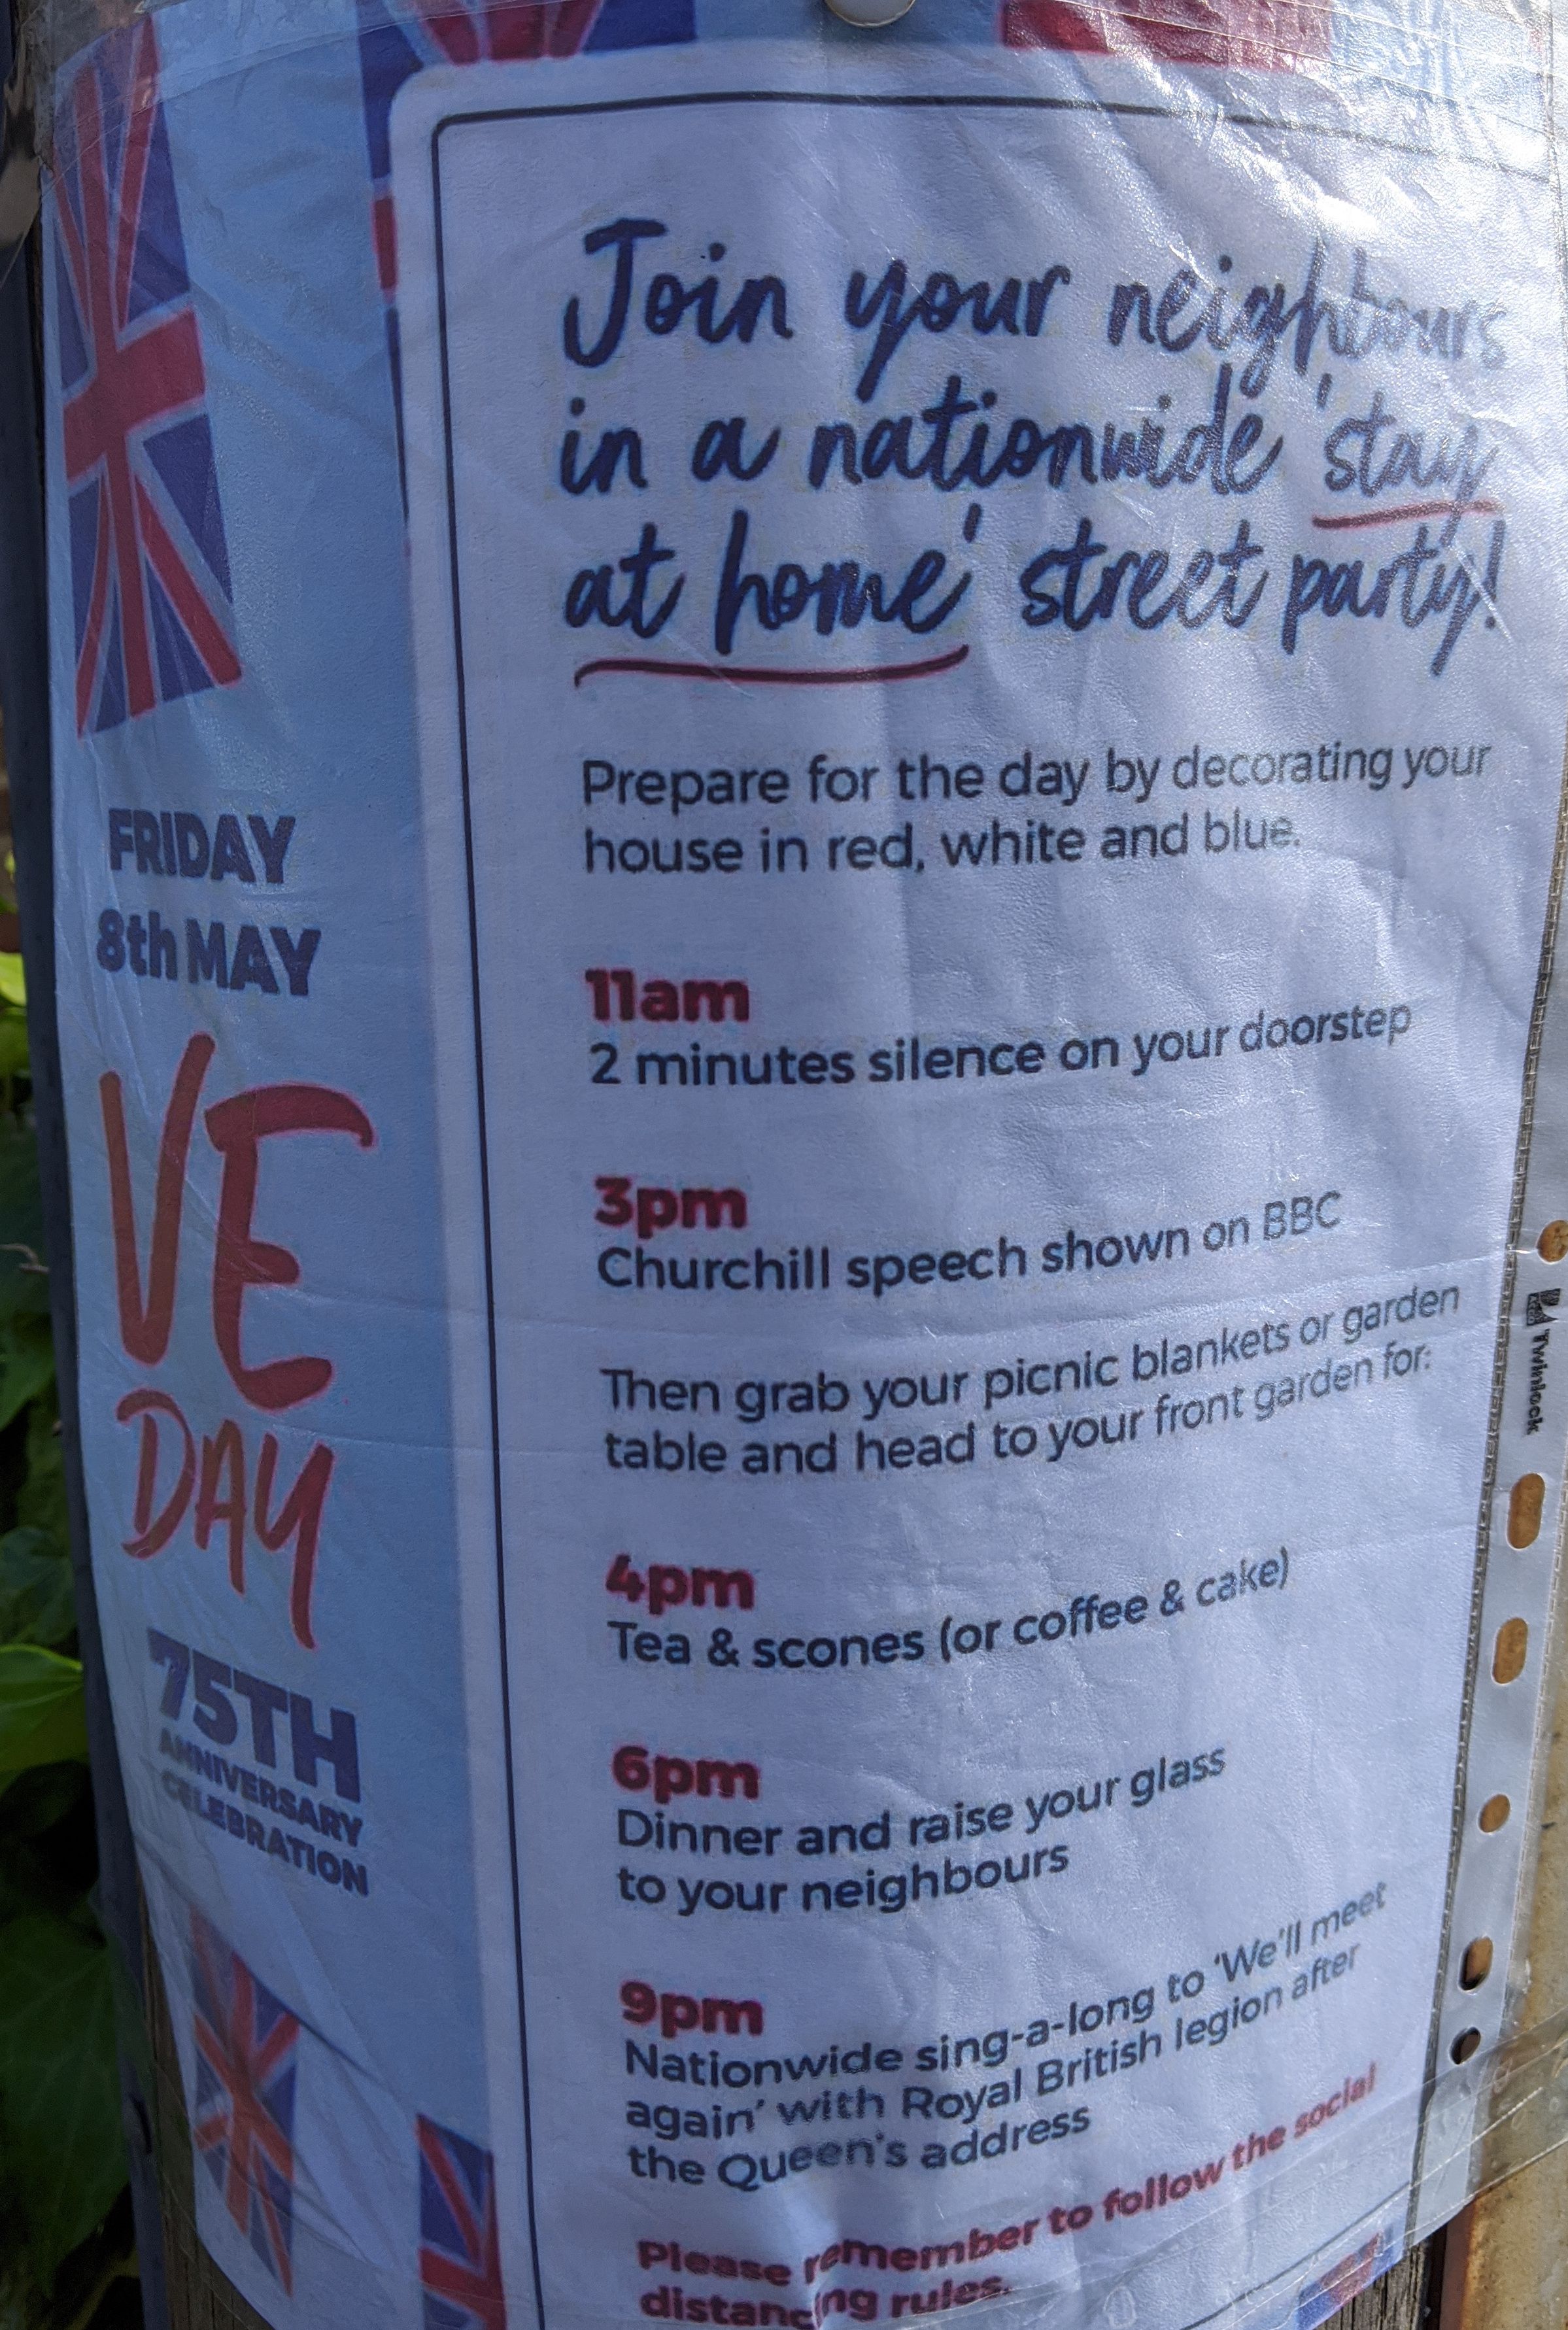 Join your neighbours
in a nationwide 'stay
at home' street party!
Prepare for the day by decorating your
house in red, white and blue.
11am
2 minutes silence on your doorstep
3pm
Churchill speech shown on BBC
Then grab your picnic blankets or garden
table and head to your front garden for:
4pm
Tea & scones (or coffee & cake)
6pm
Dinner and raise your glass
to your neighbours
9pm
Nationwide sing-a-long to 'We'll meet
again' with Royal British legion after
the Queen's address
Please remember to follow the social
distancing rules.
FRIDAY
8th MAY
VE
DAY
75TH
ANNIVERSARY
CELEBRATION
Twinlock